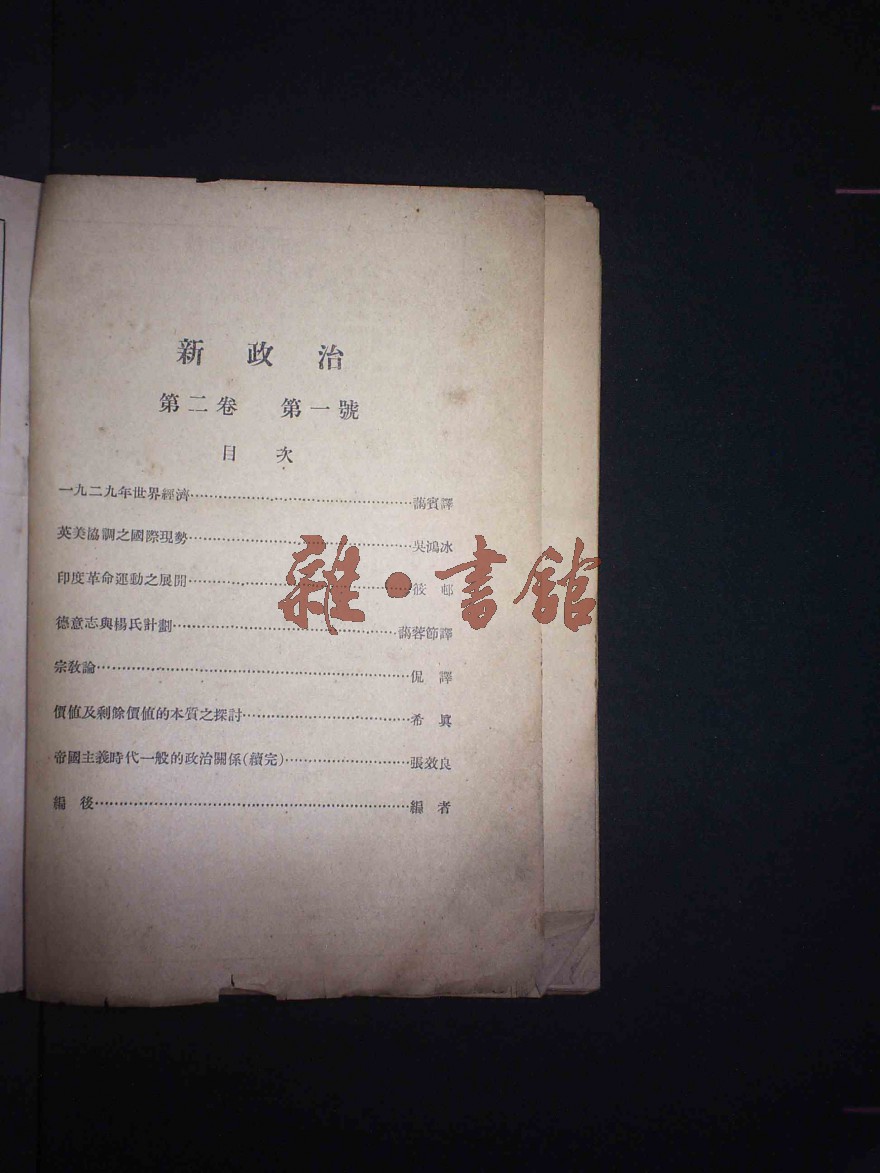 新政治
第二卷 第一號
目次
一九二九年世界經濟……藹賓譯
英美協調之國際現勢……吳鴻冰
印度革命運動之展開……筱邨
德意志與楊氏計劃……藹蓉節譯
宗敎論……侃譯
價値及剩餘價値的本質之探討……希眞
帝國主義時代一般的政治關係(續完)……張效良
編後……編者
雜·書館